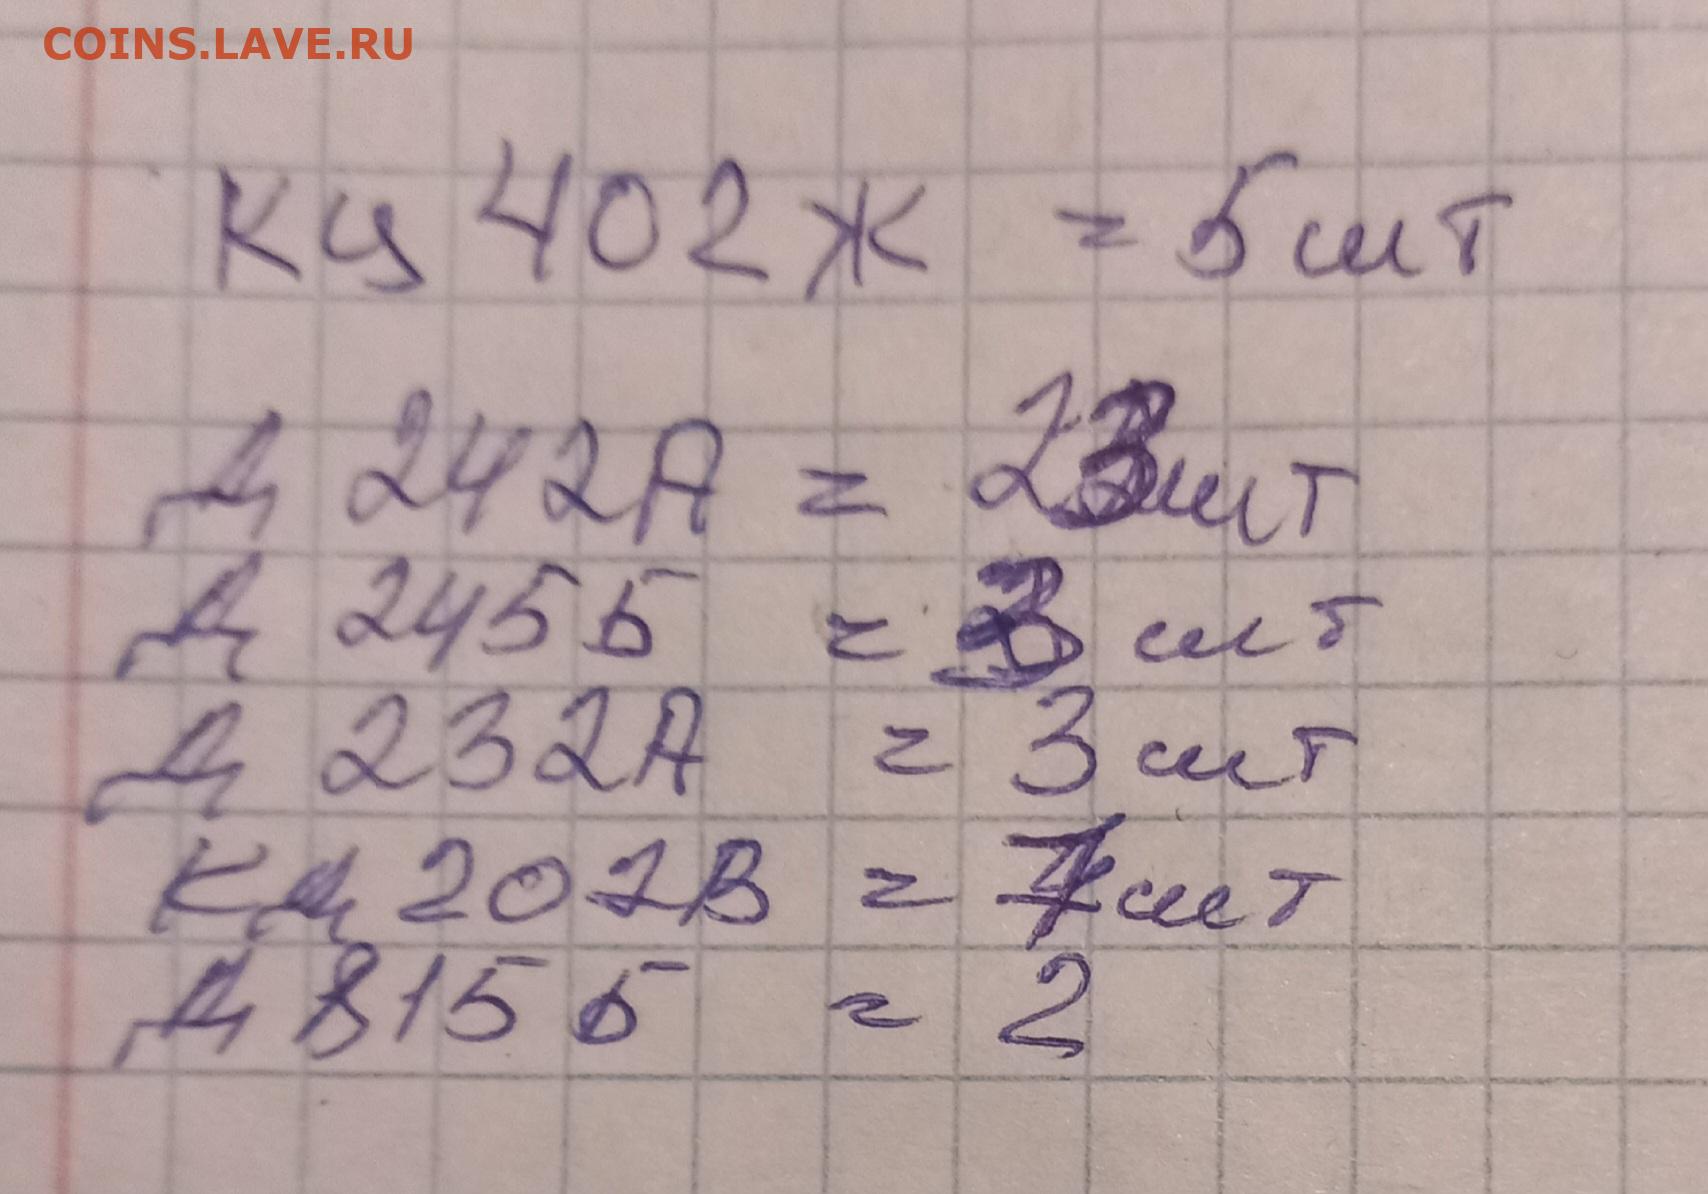 COINS.LAVE.RU
КЦ 402Ж = 5шт
Д 242А = 23шт
Д 245Б = 3 шт
Д 232А = 3шт
КЦ 202В = 7шт
Д 815Б = 2